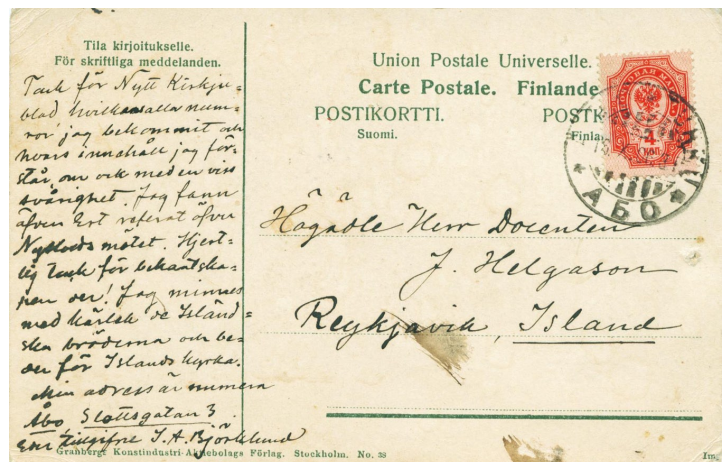 Tila kirjoitukselle.
För skriftliga meddelanden.
Tack för Nytt Kirkju-
blad hvilkas alla num-
ror jag bekommit och
hvars innehåll jag för-
står om ock med en viss
svårighet. Jag fann
äfven Ert referat öfver
mötet. Hjert-
lig tack för bekantska-
pen der! Jag minnes
med kärlek de Isländ-
ska bröderna och be-
der för Islands kyrka.
Min adress är numera
Åbo Slottsgatan 3
Eder J. A. Björklund
Union Postale Universelle.
Carte Postale. Finlande
POSTIKORTTI. POSTK
Suomi. Finla
4
КОП
АБО
Högädle Herr Docenten
J. Helgason
Reykjavik, Island
Granbergs Konstindustri-Aktiebolags Förlag. Stockholm. No. 38
Im